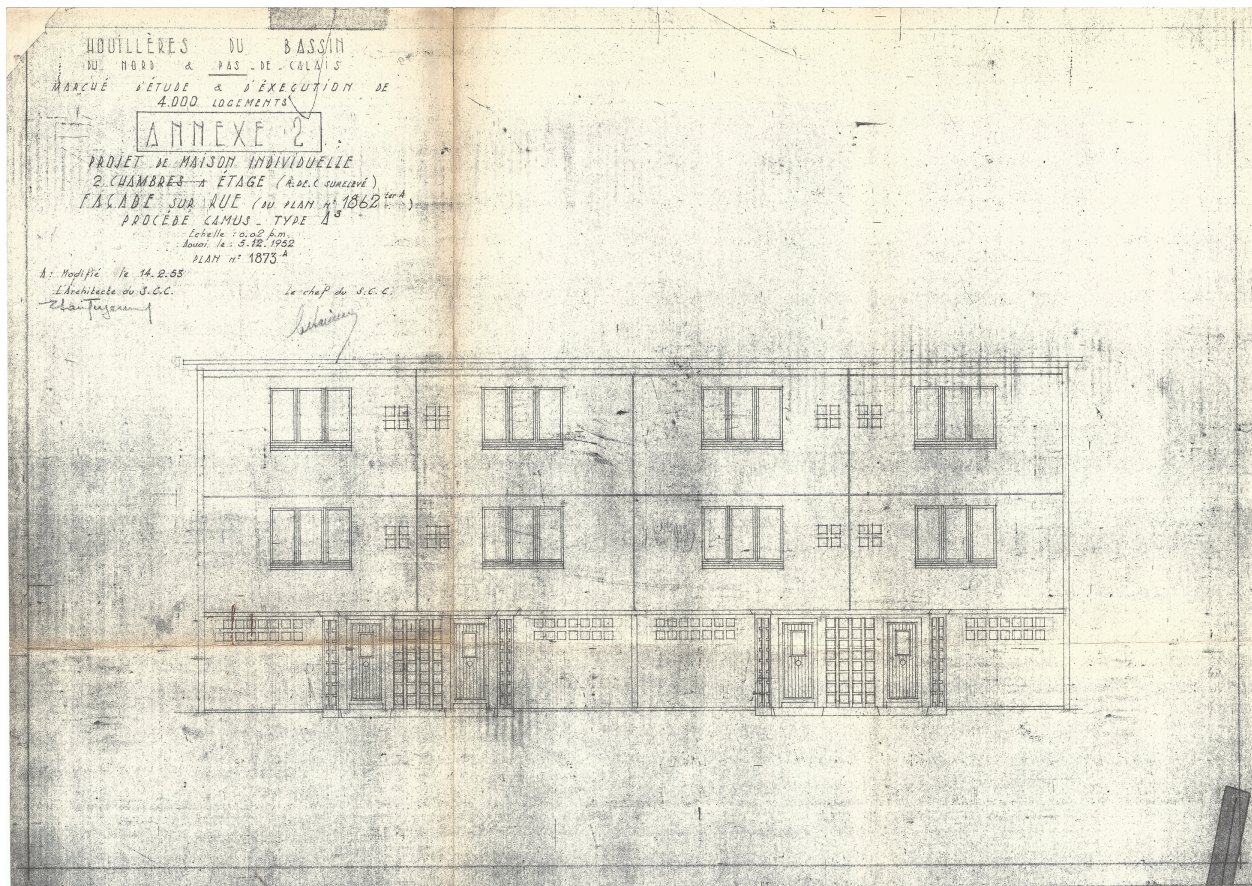 HOUILLÈRES DU BASSIN
DU NORD & PAS-DE-CALAIS
MARCHÉ D'ÉTUDE & D'ÉXECUTION DE
4.000 LOGEMENTS
ANNEXE 2
PROJET DE MAISON INDIVIDUELLE
2 CHAMBRES A ÉTAGE (R.DE.C SURELEVÉ)
FAÇADE SUR RUE (DU PLAN N° 1862 ter A)
PROCÉDÉ CAMUS - TYPE A³
Echelle : 0.02 p.m.
Douai, le : 5.12.1952
PLAN N° 1873 A
A : Modifié le 14.2.53
L'Architecte du S.C.C.
Le chef du S.C.C.